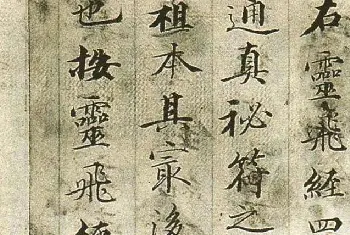 右靈飛經四
通真秘符之
祖本其寂後
也按靈飛經